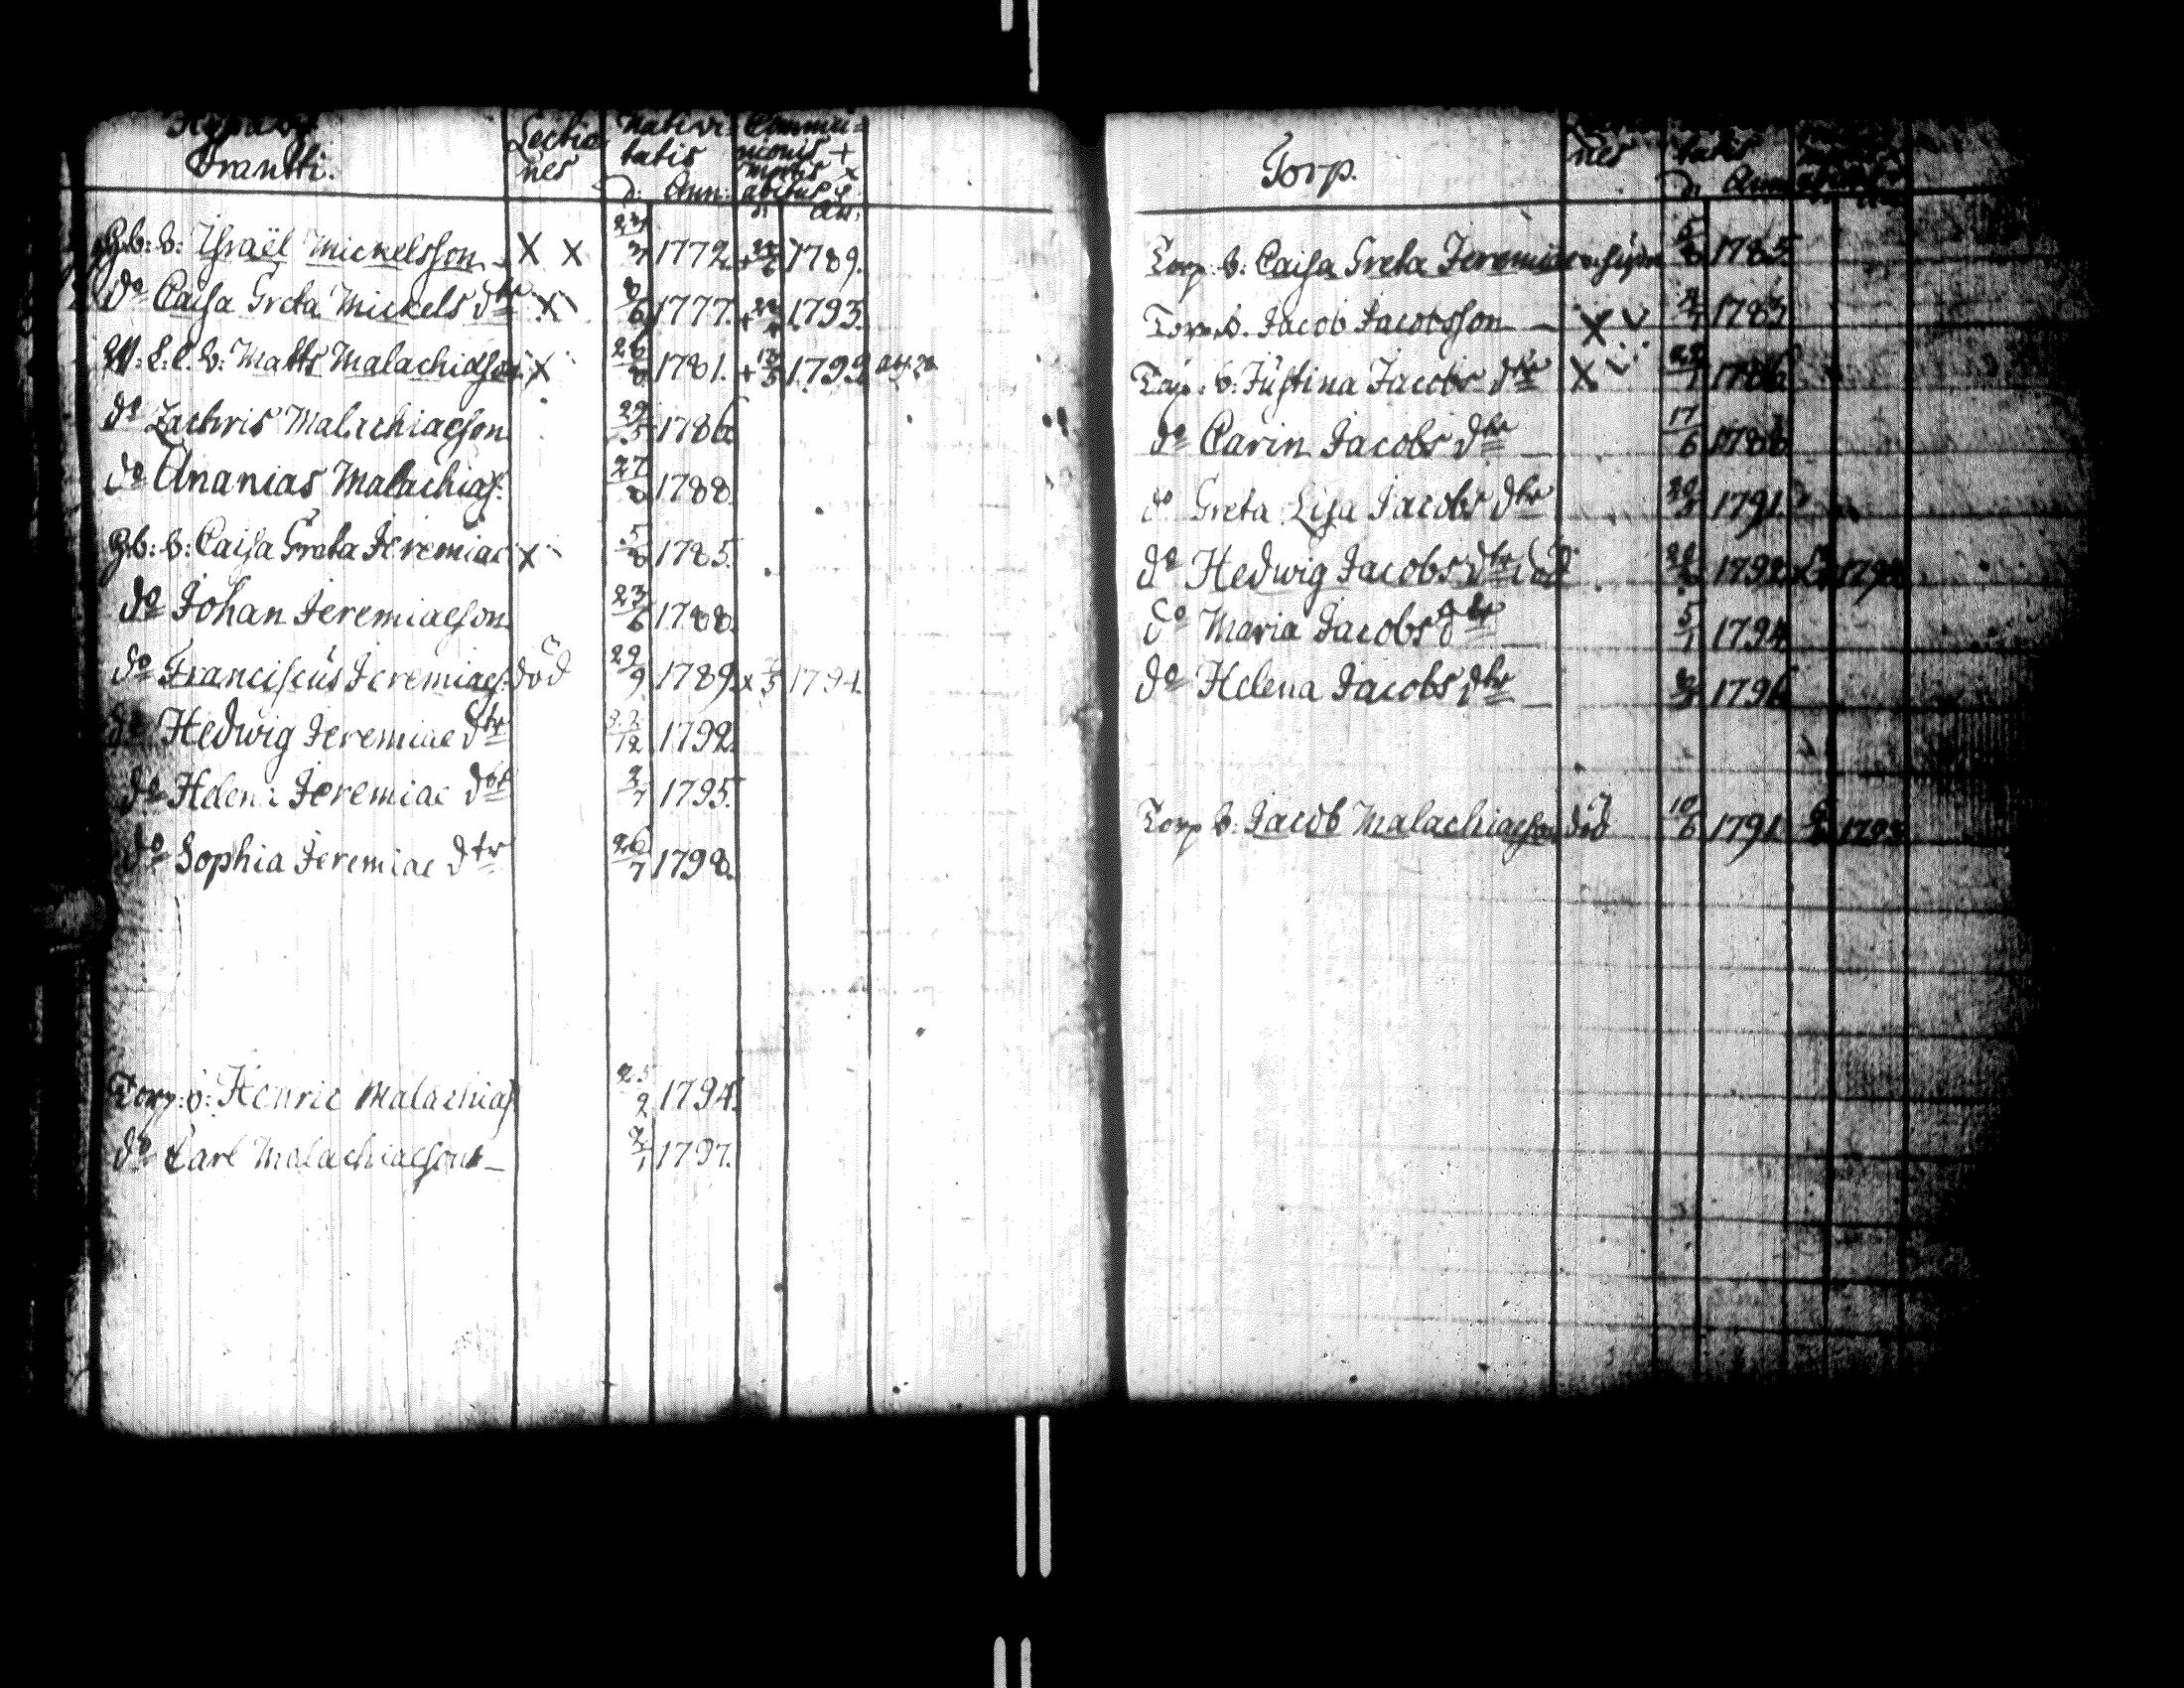 Frantti.
Lectio
nes
Nativi
tatis
d: Ann:
Commu=
nionis +
mortis x
abitus
d: An:
Gb: b: Israël Mickelsson X X 3 1772. + 6 1789.
do Caisa Greta Mickels dtr X 8/6 1777. + 1793.
b: Matts Malachiæson X 26/8 1781. + 1799.
do Zachris Malachiæson 29/5 1786.
do Ananias Malachiæs. 27/8 1788.
Gb: b: Caisa Greta Jeremiæ X 5/8 1785.
do Johan Jeremiæson 23/6 1788.
do Franciscus Jeremiæs. död 29/9 1789. x 1794.
do Hedwig Jeremiæ dtr 12 1792.
do Helena Jeremiæ dtr 2/7 1795.
do Sophia Jeremiæ dtr 26/7 1798.
Torp: b: Henric Malachiæs 25/2 1794.
do Carl Malachiæson 1797.
Torp.
nes
tatis
d: Ann
Torp: b: Caisa Greta Jeremiæ 5/8 1785.
Torp: b. Jacob Jacobsson X 1783
Torp: b: Justina Jacobs dtr X 1786
do Carin Jacobs dtr 17/6 1788
do Greta Lisa Jacobs dtr 1791.
do Hedwig Jacobs dtr död 1792
do Maria Jacobs dtr 5/1 1794
do Helena Jacobs dtr 1796
Torp b: Jacob Malachiæson död 10/6 1791